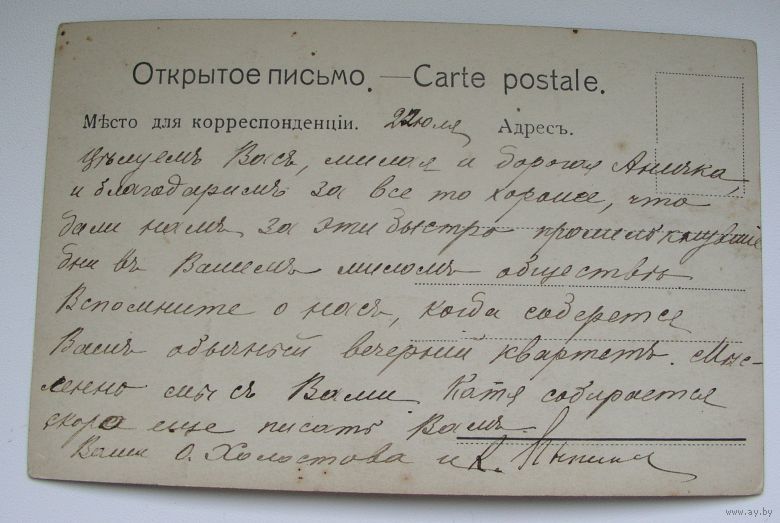 Открытое письмо. — Carte postale.
Мѣсто для корреспонденціи. 22 юля Адресъ.
Цѣлуемъ Васъ, милая и дорогая Аничка,
и благодаримъ за все то хорошее, что
дали намъ за эти быстро промелькнувшіе
дни въ Вашемъ миломъ обществѣ.
Вспомните о насъ, когда соберется
Вашъ обычный вечерній квартетъ. Мыс-
ленно мы съ Вами. Катя собирается
скоро еще писать Вамъ.
Ваши О. Холостова и К.
www.ay.by